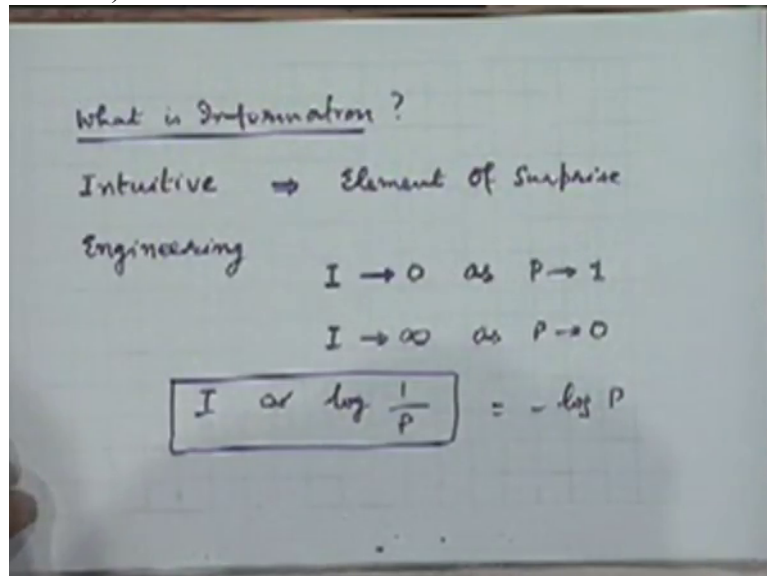 What is Information ?
Intuitive ⇒ Element Of Surprise
Engineering
I → 0 as P → 1
I → ∞ as P → 0
I α log 1/P = - log P